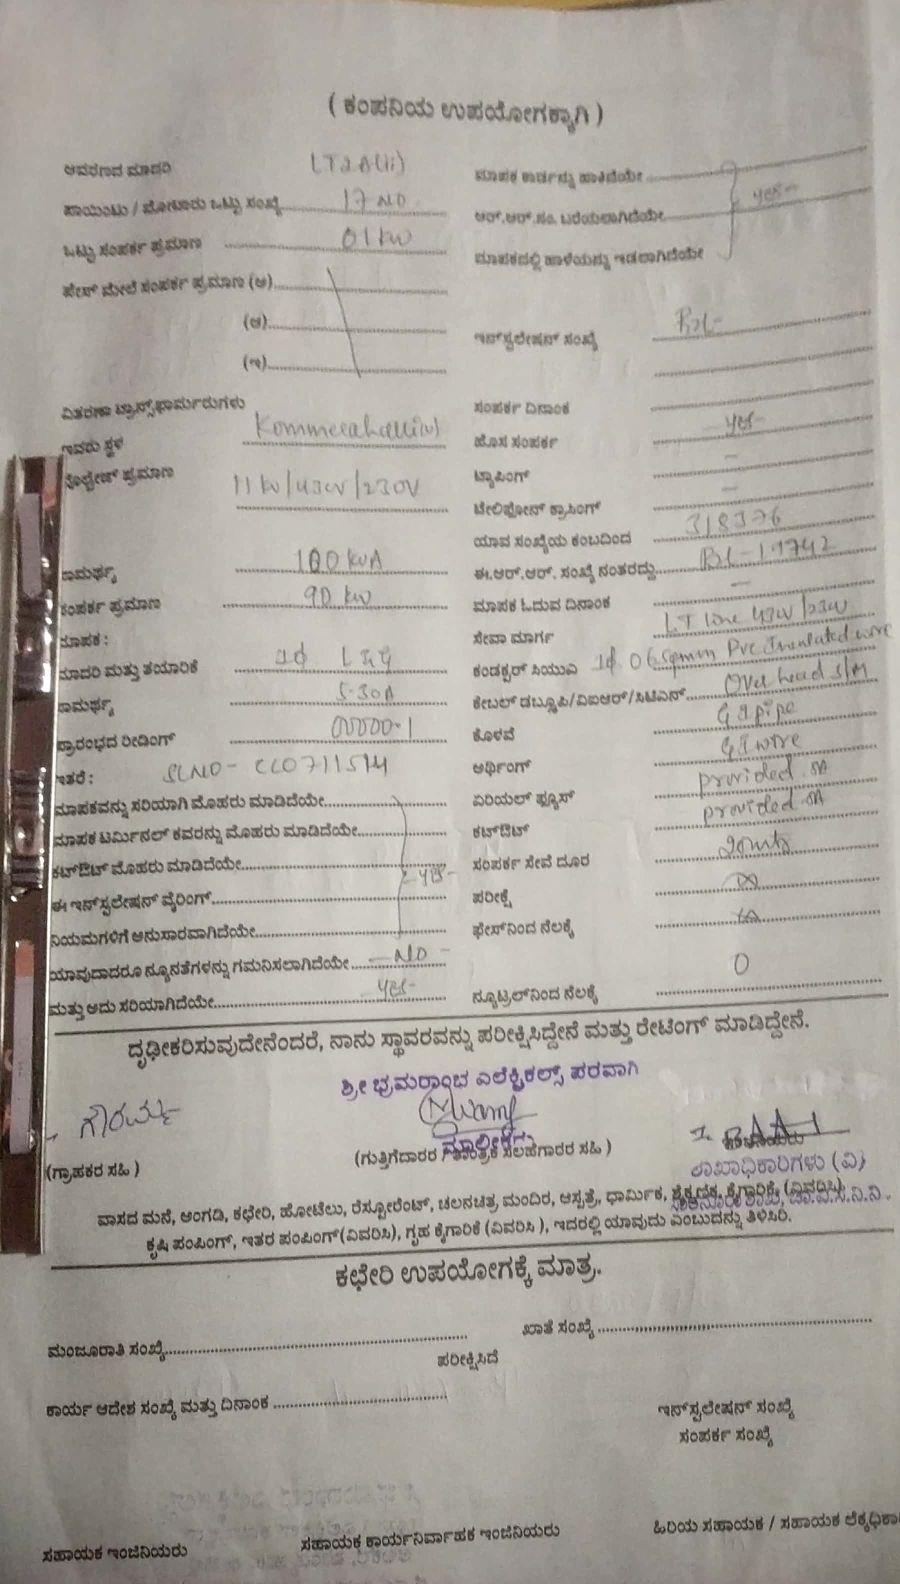 ( ಕಂಪನಿಯ ಉಪಯೋಗಕ್ಕಾಗಿ )
ಆವರಣದ ಮಾದರಿ LT2A(ii)
ಪಾಯಿಂಟು / ಮೋಟಾರು ಒಟ್ಟು ಸಂಖ್ಯೆ 17 NO
ಒಟ್ಟು ಸಂಪರ್ಕ ಪ್ರಮಾಣ 01 kw
ಪೇಸ್ ಮೇಲೆ ಸಂಪರ್ಕ ಪ್ರಮಾಣ (ಅ)
(ಆ)
(ಇ)
ವಿತರಣಾ ಟ್ರಾನ್ಸ್‌ಫಾರ್ಮರುಗಳು
ಇವರು ಸ್ಥಳ
ವೋಲ್ಟೇಜ್ ಪ್ರಮಾಣ 11 kv/430v/230V
ಸಾಮರ್ಥ್ಯ 100 kvA
ಸಂಪರ್ಕ ಪ್ರಮಾಣ 90 kw
ಮಾಪಕ :
ಮಾದರಿ ಮತ್ತು ತಯಾರಿಕೆ 1ϕ L&G
ಸಾಮರ್ಥ್ಯ 5-30A
ಪ್ರಾರಂಭದ ರೀಡಿಂಗ್ 00000.1
ಇತರೆ : SLNO-
ಮಾಪಕವನ್ನು ಸರಿಯಾಗಿ ಮೊಹರು ಮಾಡಿದೆಯೇ
ಮಾಪಕ ಟರ್ಮಿನಲ್ ಕವರನ್ನು ಮೊಹರು ಮಾಡಿದೆಯೇ
ಕಟ್‌ಔಟ್ ಮೊಹರು ಮಾಡಿದೆಯೇ - yes -
ಈ ಇನ್‌ಸ್ಟಲೇಷನ್ ವೈರಿಂಗ್
ನಿಯಮಗಳಿಗೆ ಅನುಸಾರವಾಗಿದೆಯೇ
ಯಾವುದಾದರೂ ನ್ಯೂನತೆಗಳನ್ನು ಗಮನಿಸಲಾಗಿದೆಯೇ - NO -
ಮತ್ತು ಅದು ಸರಿಯಾಗಿದೆಯೇ - yes -
ಮಾಪಕ ಕಾರ್ಡನ್ನು ಹಾಕಿದೆಯೇ
ಆರ್.ಆರ್.ಸಂ. ಬರೆಯಲಾಗಿದೆಯೇ yes -
ಮಾಪಕದಲ್ಲಿ ಹಾಳೆಯನ್ನು ಇಡಲಾಗಿದೆಯೇ
ಇನ್‌ಸ್ಟಲೇಷನ್ ಸಂಖ್ಯೆ
ಸಂಪರ್ಕ ದಿನಾಂಕ
ಹೊಸ ಸಂಪರ್ಕ - yes -
ಟ್ಯಾಪಿಂಗ್ -
ಟೆಲಿಫೋನ್ ಕ್ರಾಸಿಂಗ್ -
ಯಾವ ಸಂಖ್ಯೆಯ ಕಂಬದಿಂದ
ಈ.ಆರ್.ಆರ್. ಸಂಖ್ಯೆ ನಂತರದ್ದು
ಮಾಪಕ ಓದುವ ದಿನಾಂಕ -
ಸೇವಾ ಮಾರ್ಗ LT line
ಕಂಡಕ್ಟರ್ ಸಿಯುವಿ 1ϕ 06sqmm Pvc Insulated wire
ಕೇಬಲ್ ಡಬ್ಲೂಪಿ/ವಿಐಆರ್/ಸಿಟಿಎಸ್ Over head S/M
ಕೊಳವೆ G I pipe
ಅರ್ಥಿಂಗ್ G I wire
ಏರಿಯಲ್ ಫ್ಯೂಸ್ provided
ಕಟ್‌ಔಟ್ provided
ಸಂಪರ್ಕ ಸೇವೆ ದೂರ 20mts
ಪರೀಕ್ಷೆ
ಫೇಸ್‌ನಿಂದ ನೆಲಕ್ಕೆ
ನ್ಯೂಟ್ರಲ್‌ನಿಂದ ನೆಲಕ್ಕೆ 0
ದೃಢೀಕರಿಸುವುದೇನೆಂದರೆ, ನಾನು ಸ್ಥಾವರವನ್ನು ಪರೀಕ್ಷಿಸಿದ್ದೇನೆ ಮತ್ತು ರೇಟಿಂಗ್ ಮಾಡಿದ್ದೇನೆ.
ಶ್ರೀ ಭ್ರಮರಾಂಭ ಎಲೆಕ್ಟ್ರಿಕಲ್ಸ್ ಪರವಾಗಿ
ಗೌರಮ್ಮ
ಮಾಲೀಕರು
(ಗ್ರಾಹಕರ ಸಹಿ )
(ಗುತ್ತಿಗೆದಾರರ / ತಾಂತ್ರಿಕ ಸಲಹೆಗಾರರ ಸಹಿ )
ಶಾಖಾಧಿಕಾರಿಗಳು (ವಿ)
ವಾಸದ ಮನೆ, ಅಂಗಡಿ, ಕಛೇರಿ, ಹೋಟೆಲು, ರೆಸ್ಟೋರೆಂಟ್, ಚಲನಚಿತ್ರ ಮಂದಿರ, ಆಸ್ಪತ್ರೆ, ಧಾರ್ಮಿಕ, ಶೈಕ್ಷಣಿಕ, ಕೈಗಾರಿಕೆ, (ವಿವರಿಸಿ)
ಕೃಷಿ ಪಂಪಿಂಗ್, ಇತರ ಪಂಪಿಂಗ್(ವಿವರಿಸಿ), ಗೃಹ ಕೈಗಾರಿಕೆ (ವಿವರಿಸಿ ), ಇದರಲ್ಲಿ ಯಾವುದು ಎಂಬುದನ್ನು ತಿಳಿಸಿರಿ.
ಕಛೇರಿ ಉಪಯೋಗಕ್ಕೆ ಮಾತ್ರ.
ಮಂಜೂರಾತಿ ಸಂಖ್ಯೆ ಖಾತೆ ಸಂಖ್ಯೆ
ಪರೀಕ್ಷಿಸಿದೆ
ಕಾರ್ಯ ಆದೇಶ ಸಂಖ್ಯೆ ಮತ್ತು ದಿನಾಂಕ
ಇನ್‌ಸ್ಟಲೇಷನ್ ಸಂಖ್ಯೆ
ಸಂಪರ್ಕ ಸಂಖ್ಯೆ
ಸಹಾಯಕ ಇಂಜಿನಿಯರು ಸಹಾಯಕ ಕಾರ್ಯನಿರ್ವಾಹಕ ಇಂಜಿನಿಯರು ಹಿರಿಯ ಸಹಾಯಕ / ಸಹಾಯಕ